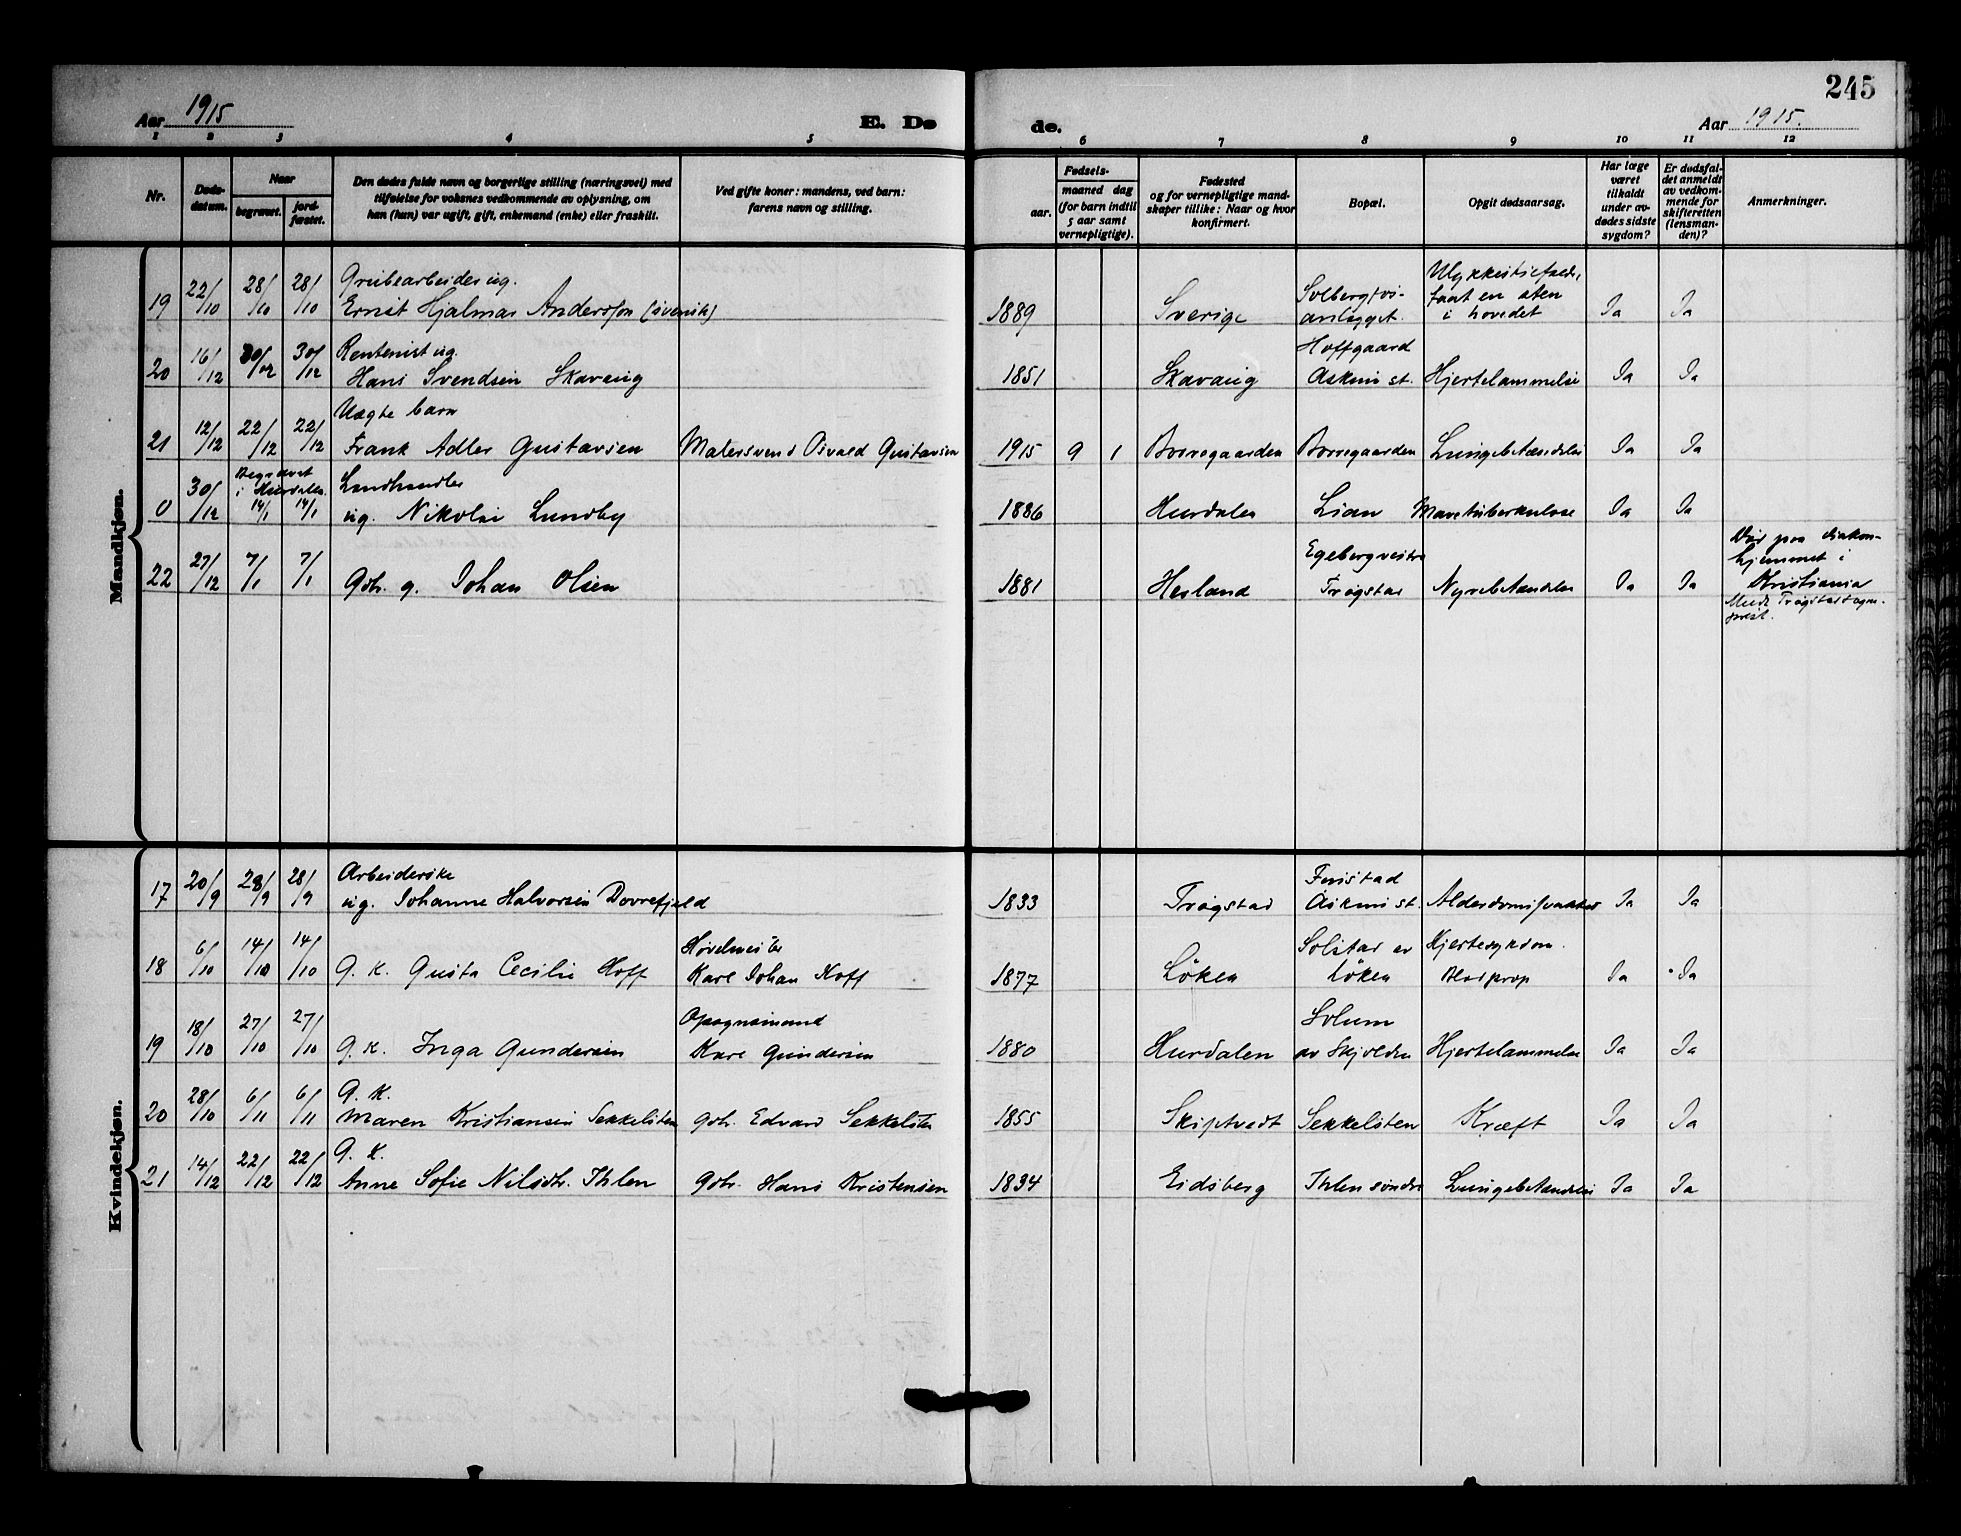 245
Aar 1915
E. Dø
de.
Aar 1915.
1 2 3 4 5 6 7 8 9 10 11 12
Nr.
Døds-
datum.
Naar
begravet.
jord-
fæstet.
Den dødes fulde navn og borgerlige stilling (næringsvei) med
tilføielse for voksnes vedkommende av oplysning, om
han (hun) var ugift, gift, enkemand (enke) eller fraskilt.
Ved gifte koner: mandens, ved barn:
farens navn og stilling.
Fødsels-
aar.
maaned dag
(for barn indtil
5 aar samt
vernepligtige).
Fødested
og for vernepligtige mand-
skaper tillike: Naar og hvor
konfirmert.
Bopæl.
Opgit dødsaarsag.
Har læge
været
tilkaldt
under av-
dødes sidste
sygdom?
Er dødsfal-
det anmeldt
av vedkom-
mende for
skifteretten
(lensman-
den)?
Anmerkninger.
Mandkjøn.
Grubearbeider ug.
19 22/10 28/10 28/10 Ernst Hjalmar Andersson (svensk) 1889 Sverige
Solbergfos-
anlægget.
Ulykkestilfælde,
faat en sten
i hovedet
Ja Ja
Rentenist ug.
20 16/12 30/12 30/12 Hans Svendsen Skavang 1851 Skavang
Hoffgaard
Askim st. Hjertelammelse Ja Ja
Uægte barn
21 12/12 22/12 22/12 Frank Adler Gustavsen Malersvend Osvald Gustavsen 1915 9 1 Borregaarden Borregaarden Lungebetændelse Ja Ja
Begravet
i Hurdalen
Landhandler
0 30/12 14/1 14/1 ug. Nikolai Lundby 1886 Hurdalen Lian Mavetuberkulose Ja Ja
22 27/12 7/1 7/1 Gbr. g. Johan Olsen 1881 Hesland
Egeberg vestre
Trøgstad Nyrebetændelse Ja Ja
Død paa diakon-
hjemmet i
Kristiania
Trøgstad sogne-
prest.
Kvindekjøn.
Arbeiderske
17 20/9 28/9 28/9 ug. Johanne Halvorsen Dovrefjeld 1833 Trøgstad
Askim st. Alderdomssvakhet Ja Ja
18 6/10 14/10 14/10 G. K. Gusta Cecilie Hoff
Høvelmester
Karl Johan Hoff 1877 Løken
Solstad av
Løken
Hjertesykdom.
Blodprop Ja Ja
19 18/10 27/10 27/10 G. K. Inga Gundersen
Opsynsmand
Karl Gundersen 1880 Hurdalen
Solum
av Skjolden Hjertelammelse Ja Ja
G. K.
20 28/10 6/11 6/11 Maren Kristiansen Sekkelsten gbr. Edvard Sekkelsten 1855 Skiptvedt Sekkelsten Kræft Ja Ja
G. K.
21 14/12 22/12 22/12 Anne Sofie Nilsdtr. Ihlen Gbr. Hans Kristensen 1834 Eidsberg Ihlen søndre Lungebetændelse Ja Ja